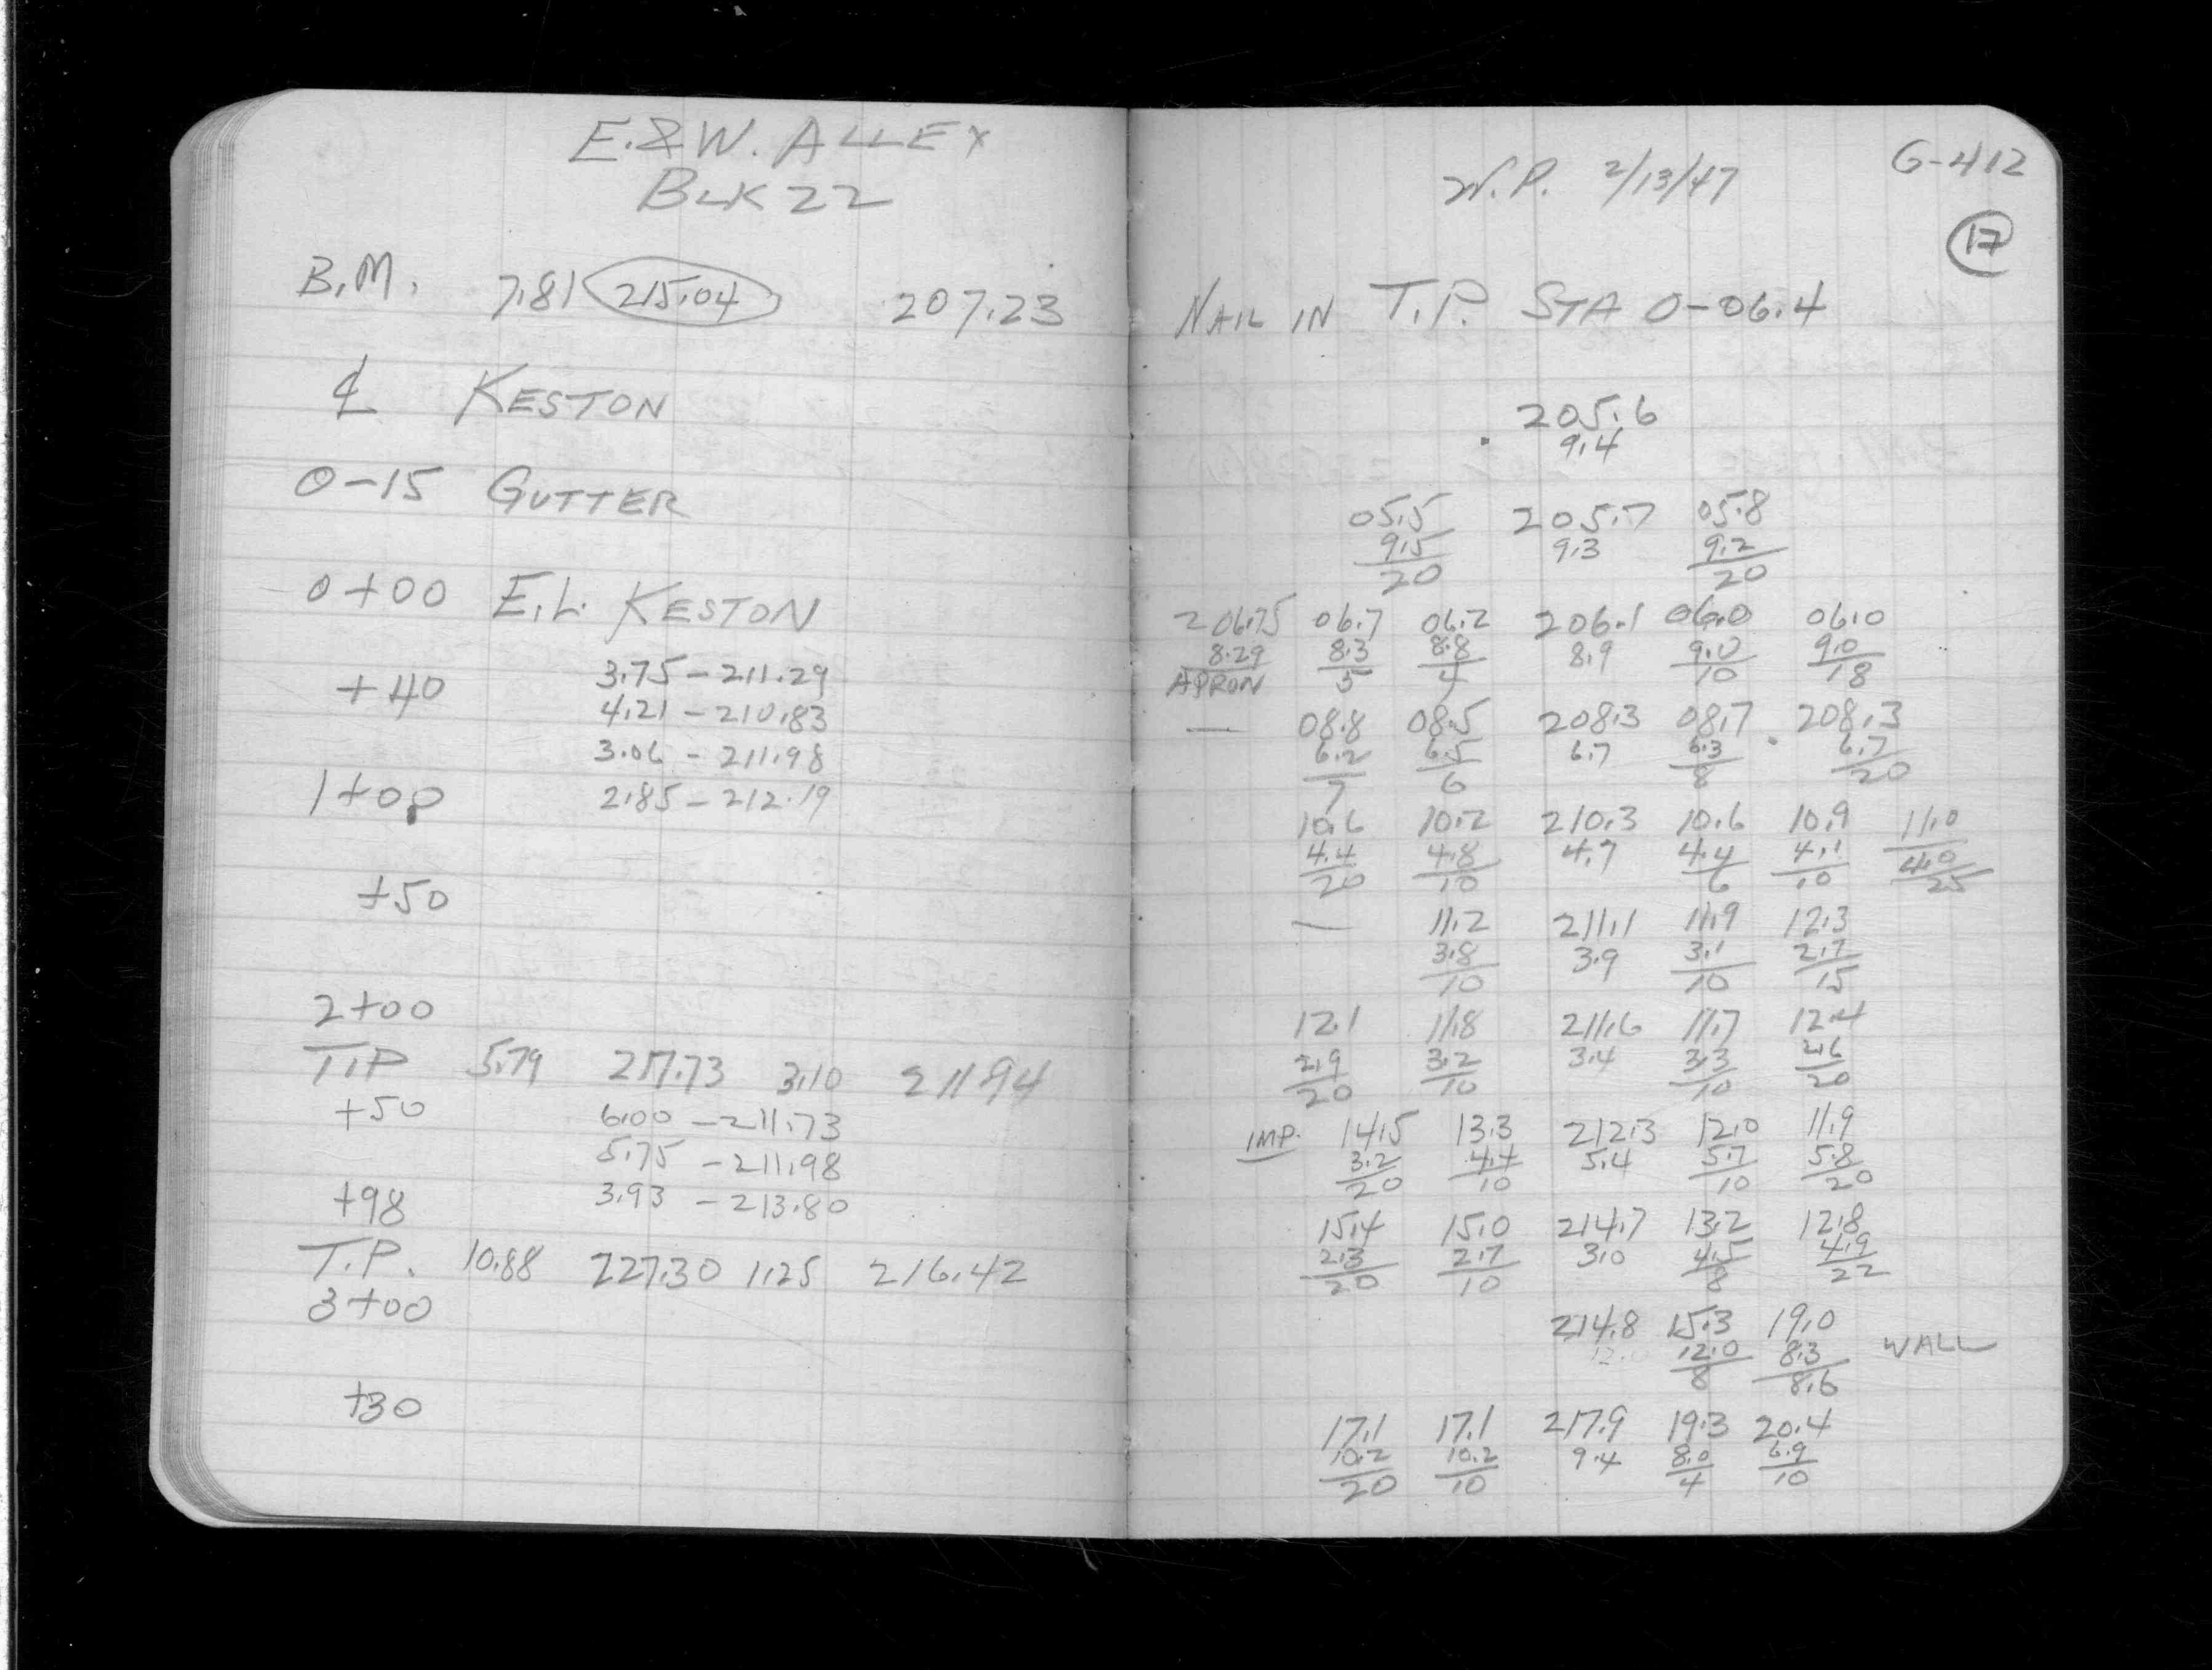 E. & W. ALLEY
BLK 22
B.M. 7.81 215.04 207.23
℄ KESTON
0-15 GUTTER
0+00 E.L. KESTON
+40 3.75 - 211.29
4.21 - 210.83
3.06 - 211.98
1+00 2.85 - 212.19
+50
2+00
T.P 5.79 217.73 3.10 211.94
+50 6.00 - 211.73
5.75 - 211.98
+98 3.93 - 213.80
T.P. 10.88 227.30 1.25 216.42
3+00
+30
W.P. 2/13/47 G-412
17
NAIL IN T.P. STA 0-06.4
205.6
9.4
05.5 205.7 05.8
9.5 9.3 9.2
20 20
206.75 06.7 06.2 206.1 06.0 06.0
8.29 8.3 8.8 8.9 9.0 9.0
APRON 5 4 10 18
— 08.8 08.5 208.3 08.7 208.3
6.2 6.5 6.7 6.3 6.7
7 6 8 20
10.6 10.2 210.3 10.6 10.9 11.0
4.4 4.8 4.7 4.4 4.1 4.0
20 10 6 10 25
— 11.2 211.1 11.9 12.3
3.8 3.9 3.1 2.7
10 10 15
12.1 11.8 211.6 11.7 12.4
2.9 3.2 3.4 3.3 2.6
20 10 10 20
IMP. 14.5 13.3 212.3 12.0 11.9
3.2 4.4 5.4 5.7 5.8
20 10 10 20
15.4 15.0 214.7 13.2 12.8
2.3 2.7 3.0 4.5 4.9
20 10 8 22
214.8 15.3 19.0 WALL
12.0 8.3
8 8.6
17.1 17.1 217.9 19.3 20.4
10.2 10.2 9.4 8.0 6.9
20 10 4 10